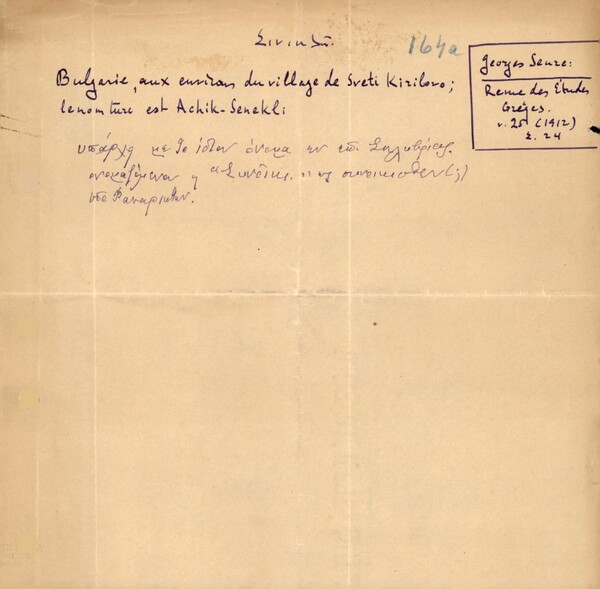 164a
Georges Seure:
Revue des Études
Grèges.
v. 25 (1912)
σ. 24
Bulgarie, aux environs du village de Sveti Kirilovo;
le nom turc est Achik-Senekli
υπάρχη με το ίδιον όνομα εν επ. Σηλυβρίας
ονομαζόμενον η
υπό Φαναριωτών.